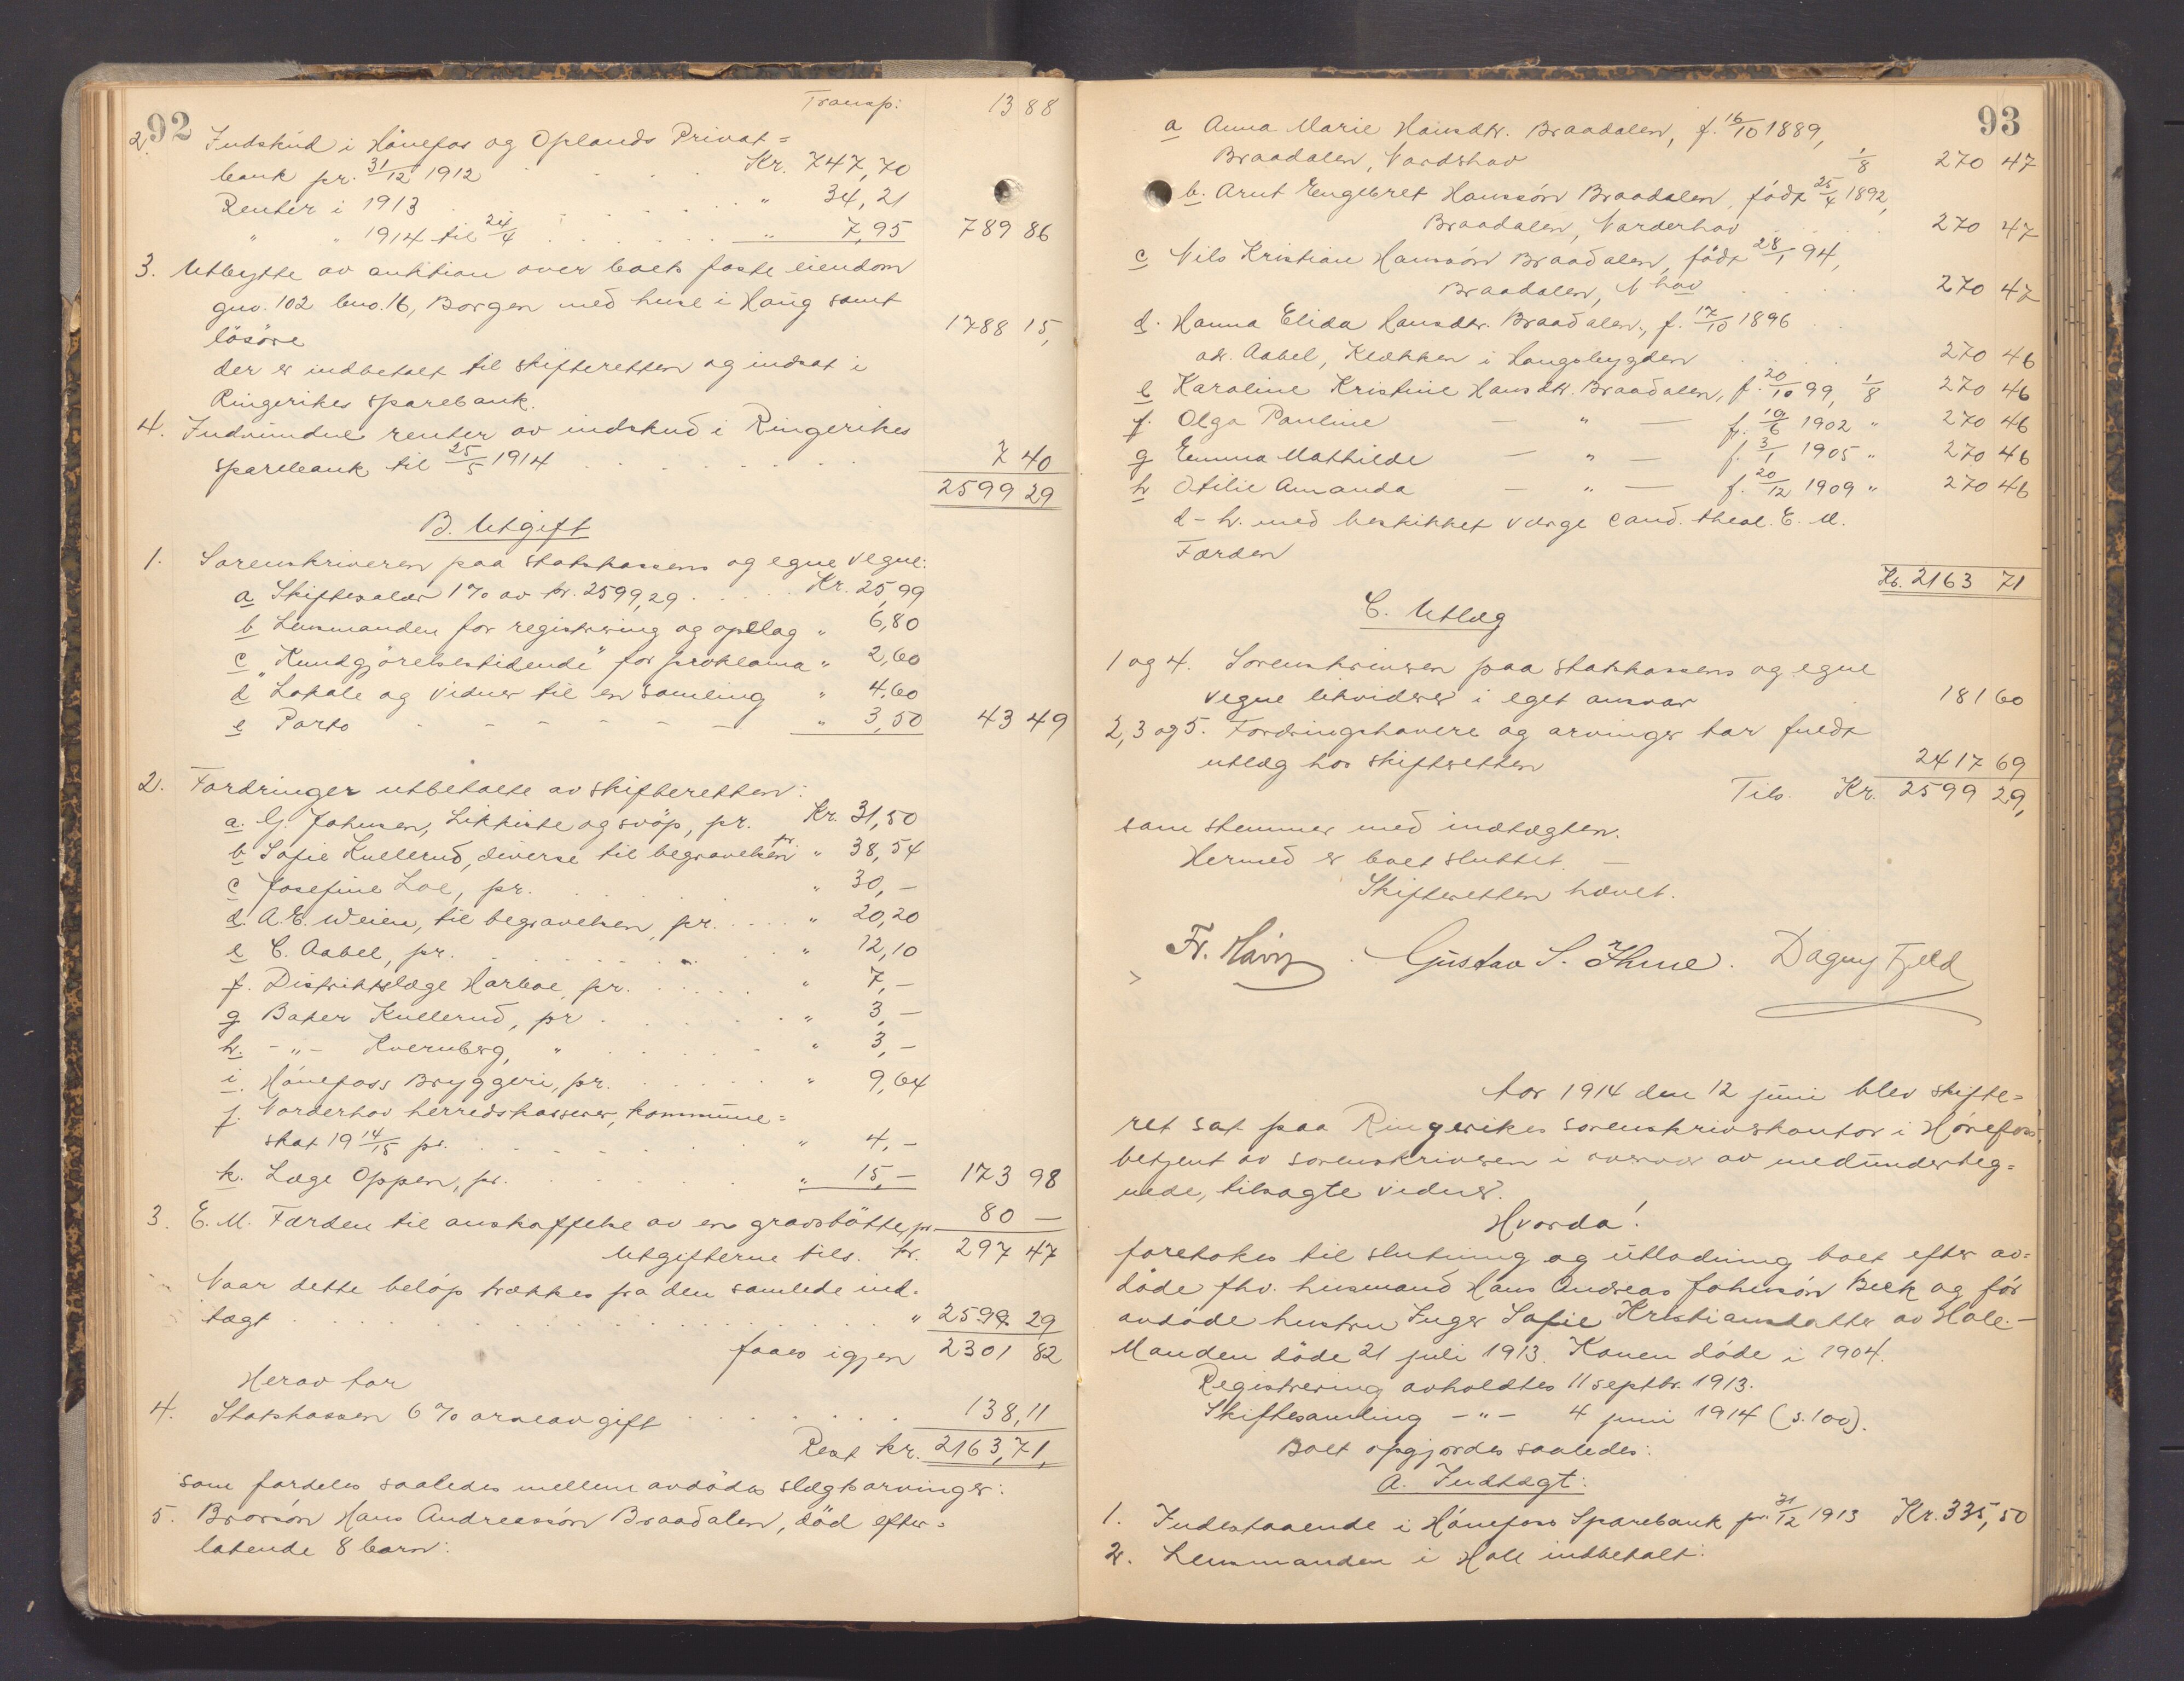 92
Transp: 13 88
2. Indskud i Hönefos og Oplands Privat=
bank pr. 31/12 1912 . . . . Kr. 747,70
Renter i 1913 . . . . . . " 34,21
" " 1914 til 24/4 . . . . . . " 7,95 789 86
3. Utbytte av auktion over boets faste eiendom
gno. 102 bno. 16, Borgen med huse i Haug samt
lösöre 1788 15,
der er indbetalt til skifteretten og indsat i
Ringerikes sparebank.
4. Indvundne renter av indskud i Ringerikes
sparebank til 25/5 1914 . . . . . . . . 7 40
2599 29
B. Utgift
1. Sorenskriveren paa statskassens og egne vegne:
a Skiftesalær 1% av kr. 2599,29 . . . . Kr. 25,99
b Lensmanden for registrering og oplag " 6,80
c "Kundgjörelsestidende" for proklama " 2,60
d Lokale og vidner til en samling " 4,60
e Porto - - - - - - " 3,50 43 49
2. Fordringer utbetalte av skifteretten:
a. G. Johnsen, Likkiste og svöp, pr. Kr. 31,50
b Sofie Kullerud, diverse til begravelsen pr " 38,54
c Josefine Loe, pr. . . . . . " 30,-
d. A. E. Weien, til begravelsen, pr. . . . . " 20,20
e C. Aabel, pr. . . . . . . . . " 12,10
f. Distriktslæge Harboe, pr. . . . . . " 7,-
g Baker Kullerud, pr . . . . . . " 3,-
h. - " - Kvernberg, " . . . . . . " 3,-
i. Hönefoss Bryggeri, pr. . . . . . " 9,64
j. Norderhov herredskasserer, kommune=
skat 19 14/15 pr. . . . . . . . " 4,-
k. Læge Oppen, pr. . . . . . . " 15,- 173 98
3. E. M. Færden til anskaffelse av en gravstötte, pr 80 -
Utgifterne tils. kr. 297 47
Naar dette belöp trækkes fra den samlede ind-
tægt . . . . . . . . . . . . . . " 2599 29
faaes igjen 2301 82
Herav tar
4. Statskassen 6% arveavgift . . . . . . . 138,11
Rest kr. 2163,71,
som fordeles saaledes mellem avdödes slegtsarvinger:
5. Brorsön Hans Andreassön Braadalen, död efter=
latende 8 barn:
93
a Anna Marie Hansdtr. Braadalen, f. 16/10 1889,
Braadalen, Nordrhov 1/8 270 47
b. Arnt Engebret Hanssön Braadalen, födt 25/4 1892,
Braadalen, Norderhov . . . . 270 47
c Nils Kristian Hanssön Braadalen, födt 28/1 94,
Braadalen, N hov . . . . 270 47
d. Hanna Elida Hansdtr. Braadalen, f. 17/10 1896 . .
adr. Aabel, Klækken i Haugsbygden . . . . 270 46
e Karoline Kristine Hansdtr. Braadalen, f. 20/10 99, 1/8 270 46
f. Olga Pauline — " — f. 19/6 1902 " 270 46
g Emma Mathilde — " — f. 3/1 1905 " 270 46
h Otilie Amanda — " — f. 20/12 1909 " 270 46
d - h. med beskikket værge cand. theol. E. M.
Færden
Kr. 2163 71
C. Utlæg
1 og 4. Sorenskriveren paa statskassens og egne
vegne likviderer i eget ansvar 181 60
2, 3 og 5. Fordringshavere og arvinger tar fuldt
utlæg hos skifteretten 2417 69
Tils. Kr. 2599 29,
som stemmer med indtægten.
Hermed er boet sluttet. —
Skifteretten hævet.
Gustav S. Ihme. Dagny Fjeld
Aar 1914 den 12 juni blev skifte=
ret sat paa Ringerikes sorenskriverkontor i Hönefoss,
betjent av sorenskriveren i overvær av medunderteg=
nede, tilsagte vidner.
Hvorda!
foretokes til slutning og utlodning boet efter av=
döde fhv. husmand Hans Andreas Johnsön Bek og för
avdöde hustru Inger Sofie Kristiansdatter av Hole. —
Manden döde 21 juli 1913. Konen döde i 1904.
Registrering avholdtes 11 septbr. 1913.
Skiftesamling - " - 4 juni 1914 (s. 100).
Boet opgjordes saaledes:
A. Indtægt:
1. Indestaaende i Hönefoss Sparebank pr. 31/12 1913 Kr. 335,50
2. Lensmanden i Hole indbetalt: